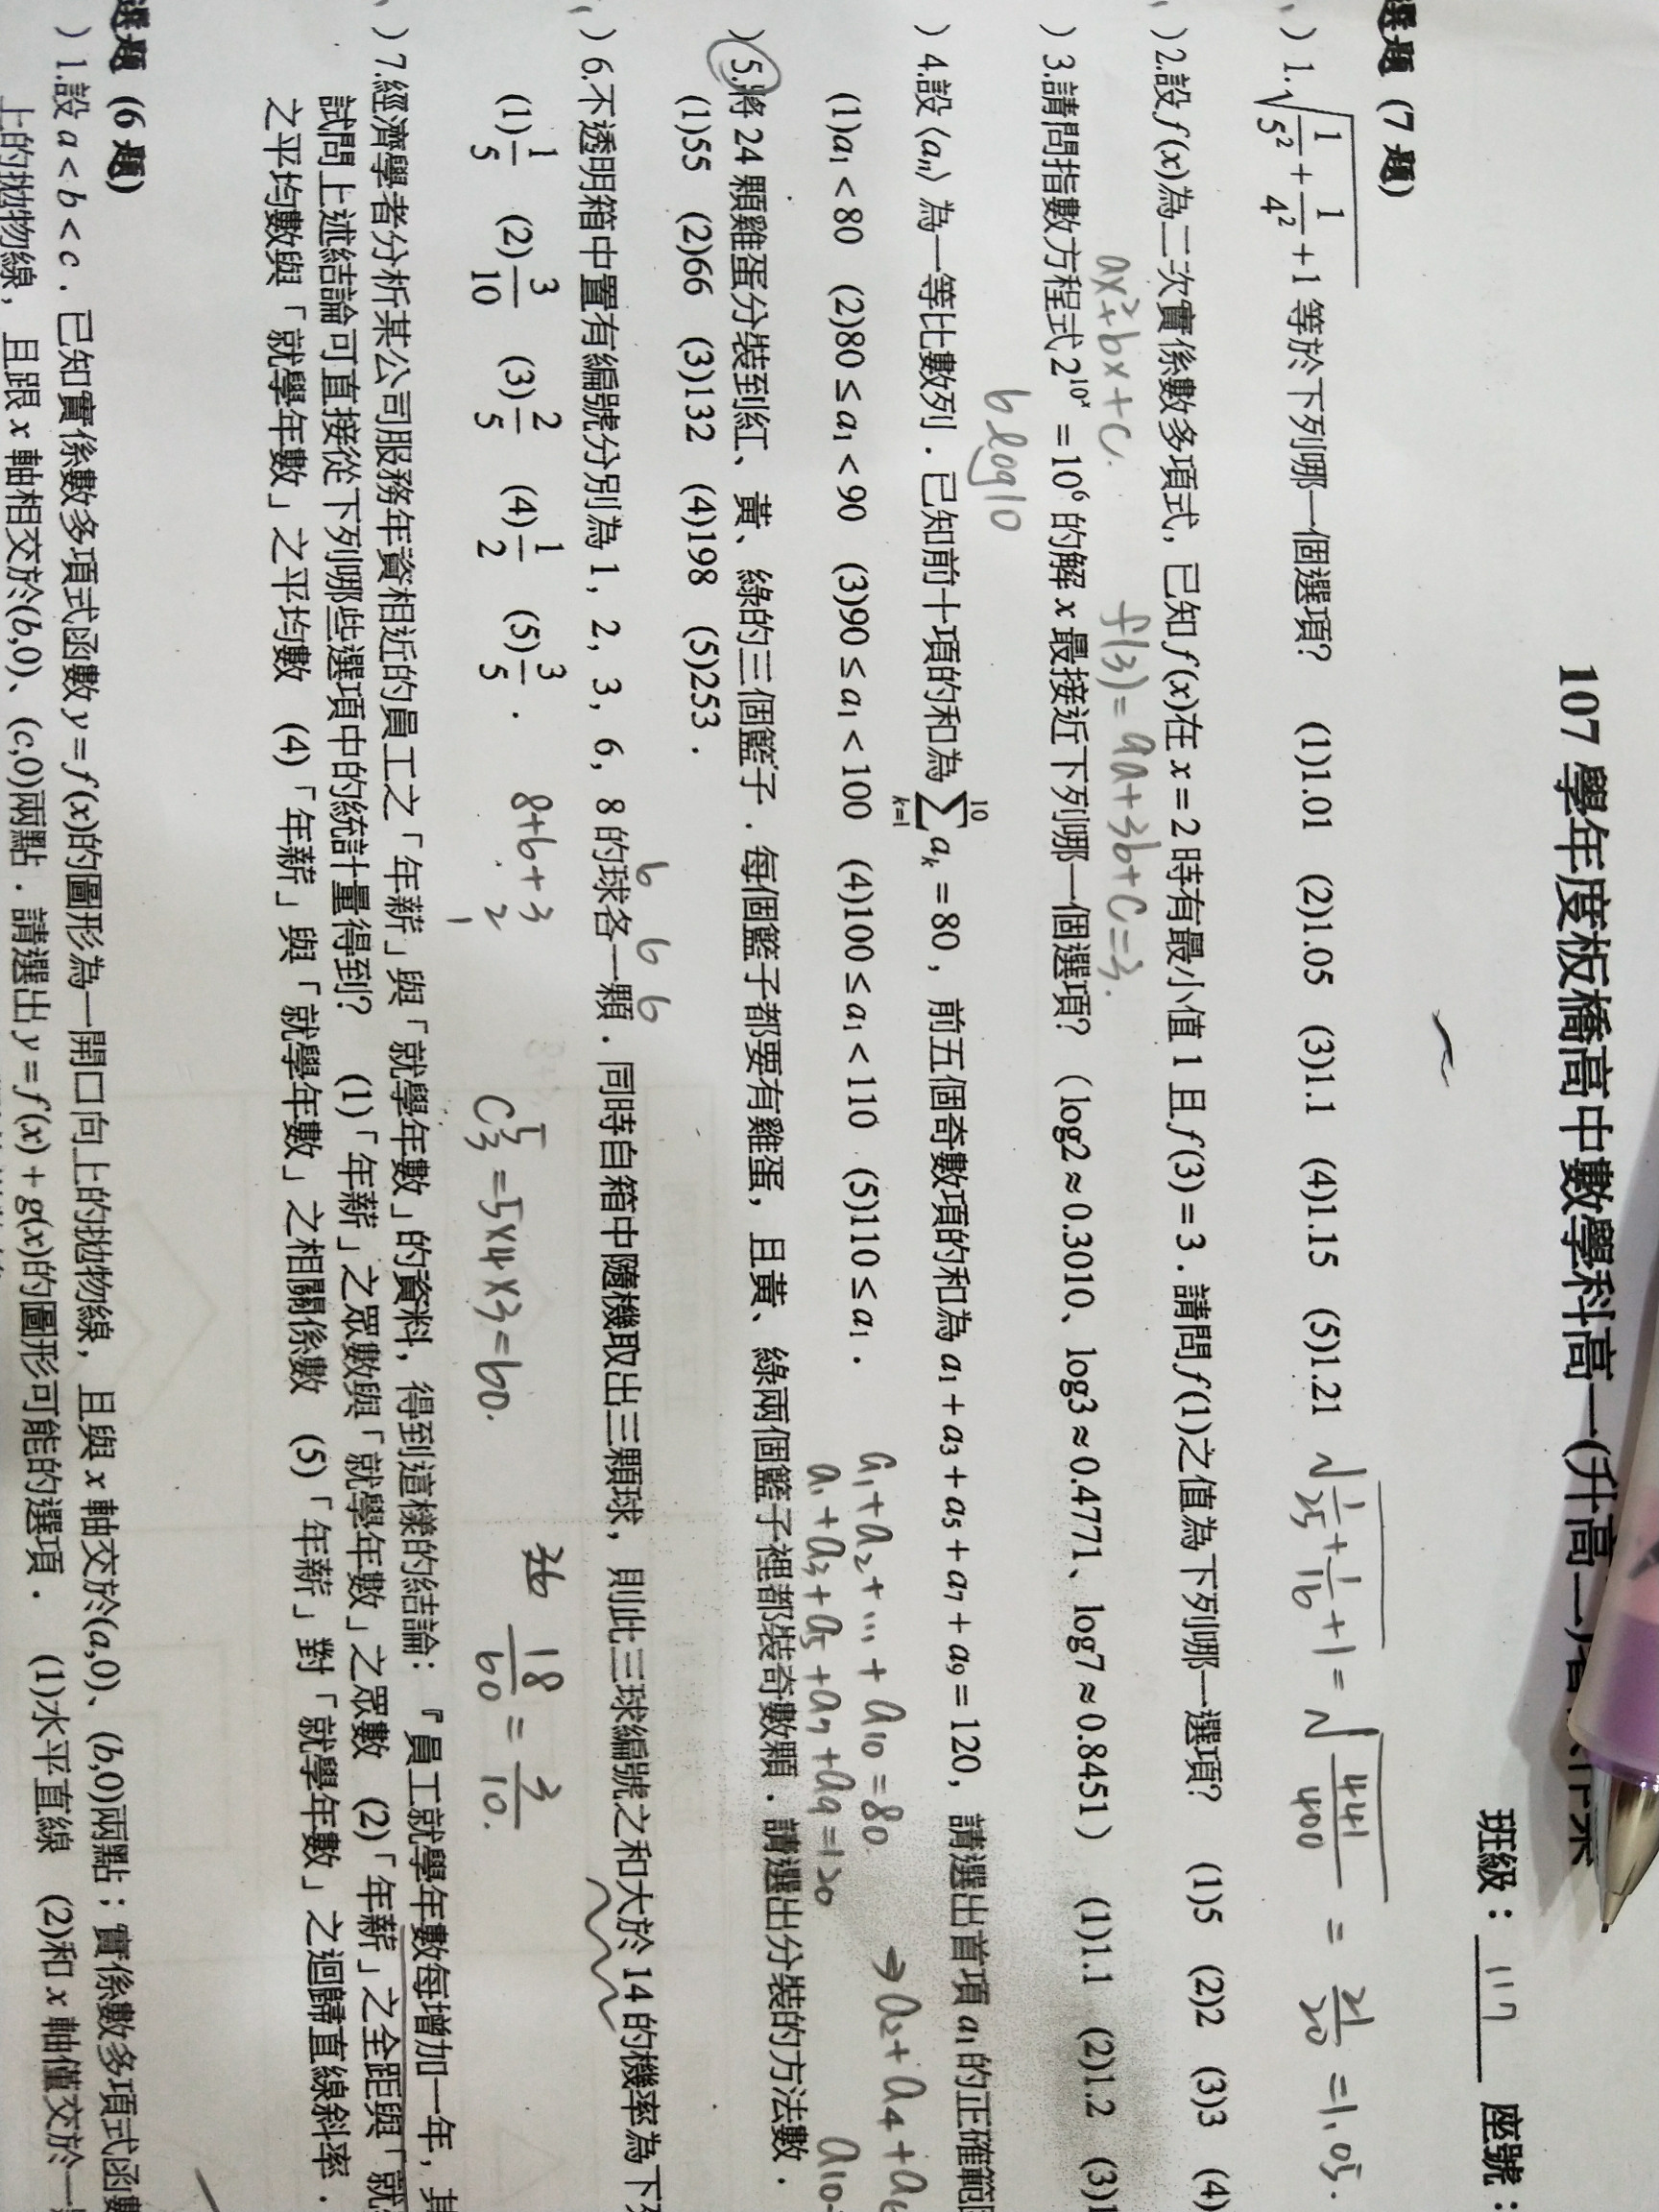 107 學年度板橋高中數學科高一(升高二)
班級：117 座號：
選題 (7 題)
) 1. √(1/5² + 1/4² + 1) 等於下列哪一個選項？ (1)1.01 (2)1.05 (3)1.1 (4)1.15 (5)1.21 √(1/25 + 1/16 + 1) = √(441/400) = 21/20 = 1.05.
) 2.設 f(x)為二次實係數多項式，已知 f(x)在 x = 2 時有最小值 1 且 f(3) = 3．請問 f(1)之值為下列哪一選項？ (1)5 (2)2 (3)3 (4)
ax²+bx+c. f(3) = 9a+3b+c=3.
) 3.請問指數方程式 2^(10^x) = 10⁶ 的解 x 最接近下列哪一個選項？（log2 ≈ 0.3010、log3 ≈ 0.4771、log7 ≈ 0.8451） (1)1.1 (2)1.2 (3)1
6 log10
) 4.設⟨aₙ⟩ 為一等比數列．已知前十項的和為 ∑_{k=1}^{10} aₖ = 80，前五個奇數項的和為 a₁ + a₃ + a₅ + a₇ + a₉ = 120，請選出首項 a₁ 的正確範圍
(1)a₁ < 80 (2)80 ≤ a₁ < 90 (3)90 ≤ a₁ < 100 (4)100 ≤ a₁ < 110 (5)110 ≤ a₁．
a₁+a₂+...+a₁₀=80. → a₂+a₄+a₆
a₁+a₃+a₅+a₇+a₉=120 a₁₀
) 5.將 24 顆雞蛋分裝到紅、黃、綠的三個籃子．每個籃子都要有雞蛋，且黃、綠兩個籃子裡都裝奇數顆．請選出分裝的方法數．
(1)55 (2)66 (3)132 (4)198 (5)253．
6 6 6
) 6.不透明箱中置有編號分別為 1，2，3，6，8 的球各一顆．同時自箱中隨機取出三顆球，則此三球編號之和大於 14 的機率為下列
(1)1/5 (2)3/10 (3)2/5 (4)1/2 (5)3/5．
8+6+3
2
1
C⁵₃=5×4×3=60.
18/60 = 3/10.
) 7.經濟學者分析某公司服務年資相近的員工之「年薪」與「就學年數」的資料，得到這樣的結論：『員工就學年數每增加一年，其
試問上述結論可直接從下列哪些選項中的統計量得到？ (1)「年薪」之眾數與「就學年數」之眾數 (2)「年薪」之全距與「就
之平均數與「就學年數」之平均數 (4)「年薪」與「就學年數」之相關係數 (5)「年薪」對「就學年數」之迴歸直線斜率．
選題 (6 題)
) 1.設 a < b < c．已知實係數多項式函數 y = f(x)的圖形為一開口向上的拋物線，且與 x 軸交於(a,0)、(b,0)兩點；實係數多項式函數
上的拋物線，且跟 x 軸相交於(b,0)、(c,0)兩點．請選出 y = f(x) + g(x)的圖形可能的選項． (1)水平直線 (2)和 x 軸僅交於一